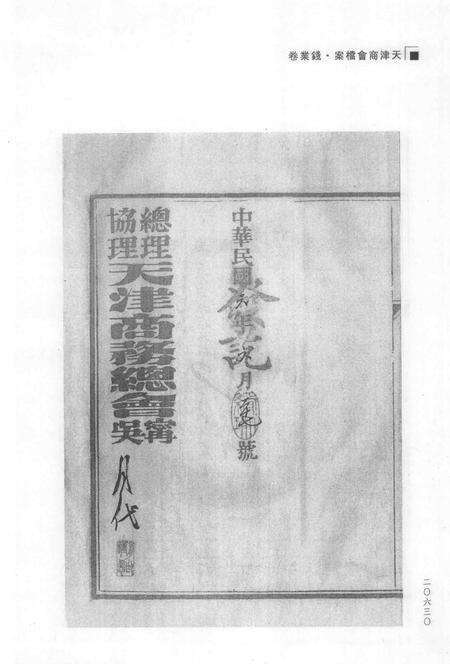 天津商會檔案·錢業卷
中華民國元年　月　號
發訖
總理
協理
天津商務總會
甯
吳
月代
二〇六三〇